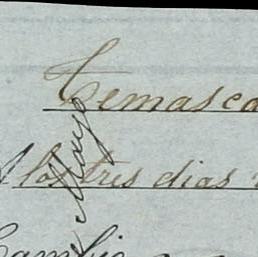 Temasca
Mayo
A los tres dias
Cambio